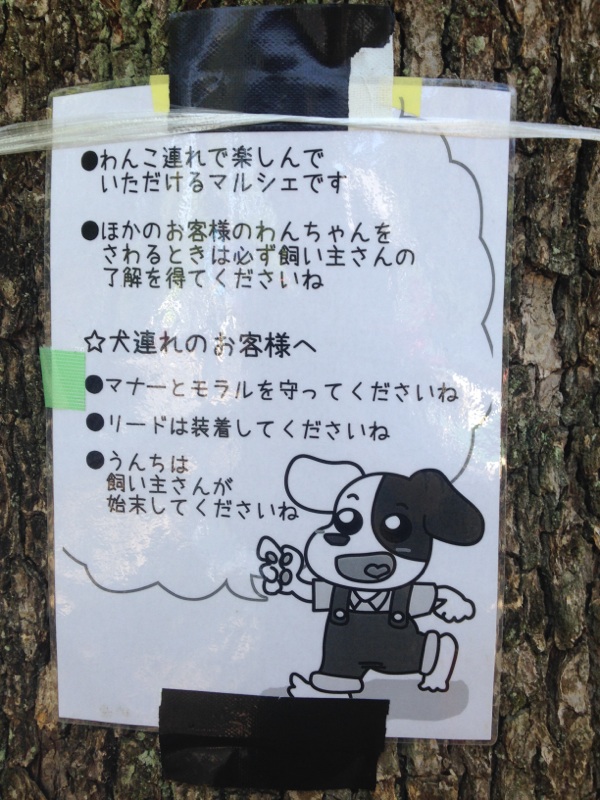 ●わんこ連れで楽しんで
いただけるマルシェです
●ほかのお客様のわんちゃんを
さわるときは必ず飼い主さんの
了解を得てくださいね
☆犬連れのお客様へ
●マナーとモラルを守ってくださいね
●リードは装着してくださいね
●うんちは
飼い主さんが
始末してくださいね